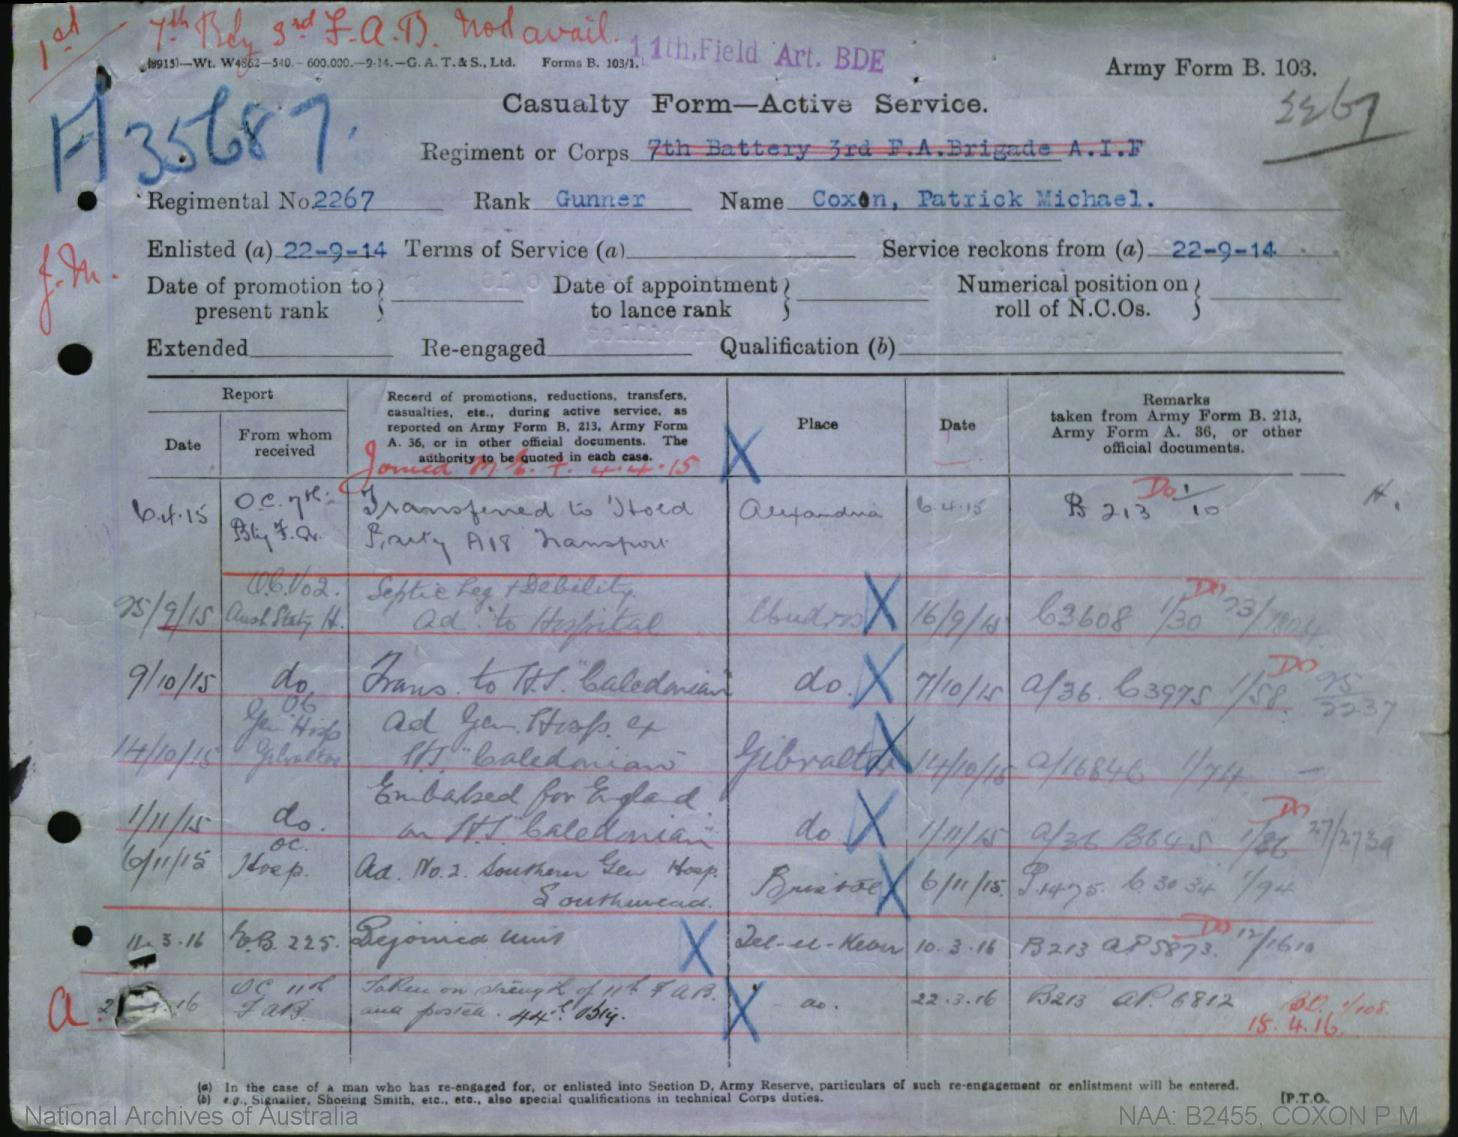 1st 7th Bty 3rd F.A.B. Nod avail.
(8915)—Wt. W4862—540.—600,000.—9-14.—G. A. T. & S., Ltd. Forms B. 103/1. 11th, Field Art. BDE
Army Form B. 103.
Casualty Form—Active Service.
H 35687.
Regiment or Corps 7th Battery 3rd F.A.Brigade A.I.F
Regimental No. 2267 Rank Gunner Name Coxon, Patrick Michael.
Enlisted (a) 22-9-14 Terms of Service (a) Service reckons from (a) 22-9-14
J.M.
Date of promotion to present rank } Date of appointment to lance rank } Numerical position on roll of N.C.Os. }
Extended Re-engaged Qualification (b)
Report
Date
From whom received
Record of promotions, reductions, transfers,
casualties, etc., during active service, as
reported on Army Form B. 213, Army Form
A. 36, or in other official documents. The
authority to be quoted in each case.
Place
Date
Remarks
taken from Army Form B. 213,
Army Form A. 36, or other
official documents.
Joined M.E.F. 4.4.15
X
6.4.15 O.C. 7th Transferred to Alexandria 6.4.15 B 213 Do 1/10 H.
Bty F.A. Party A18 Transport
O.C. No 2. Septic Leg & Debility Do
25/9/15 Aust Staty H. Ad. to Hospital Mudros X 16/9/15 C3608 1/30
9/10/15 do Trans. to H.S. "Caledonian" do. X 7/10/15 A/36. C3975 1/58. Do 25/2237
OC
Gen Hosp Ad Gen. Hosp. ex
14/10/15 Gibraltar HS "Caledonian" Gibraltar X 14/10/15 A/16846 1/74 —
Embarked for England Do
1/11/15 do. on H.S. "Caledonian" do X 1/11/15 A/36 B645 1/86
OC.
6/11/15 Hosp. Ad. No. 2. Southern Gen Hosp. Bristol X 6/11/15. C 3034 1/94
Southmead.
11.3.16 B. 225. Rejoined Unit X Tel-el-Kebir 10.3.16 B213 AP5873. Do 12/1610
OC 11th Taken on strength of 11th F.A.B.
a 16 FAB. and posted. 44th Bty. X do. 22.3.16 B213 AP. 6812
15.4.16.
(a) In the case of a man who has re-engaged for, or enlisted into Section D, Army Reserve, particulars of such re-engagement or enlistment will be entered.
(b) e.g., Signaller, Shoeing Smith, etc., etc., also special qualifications in technical Corps duties.
[P.T.O.
National Archives of Australia
NAA: B2455, COXON P M